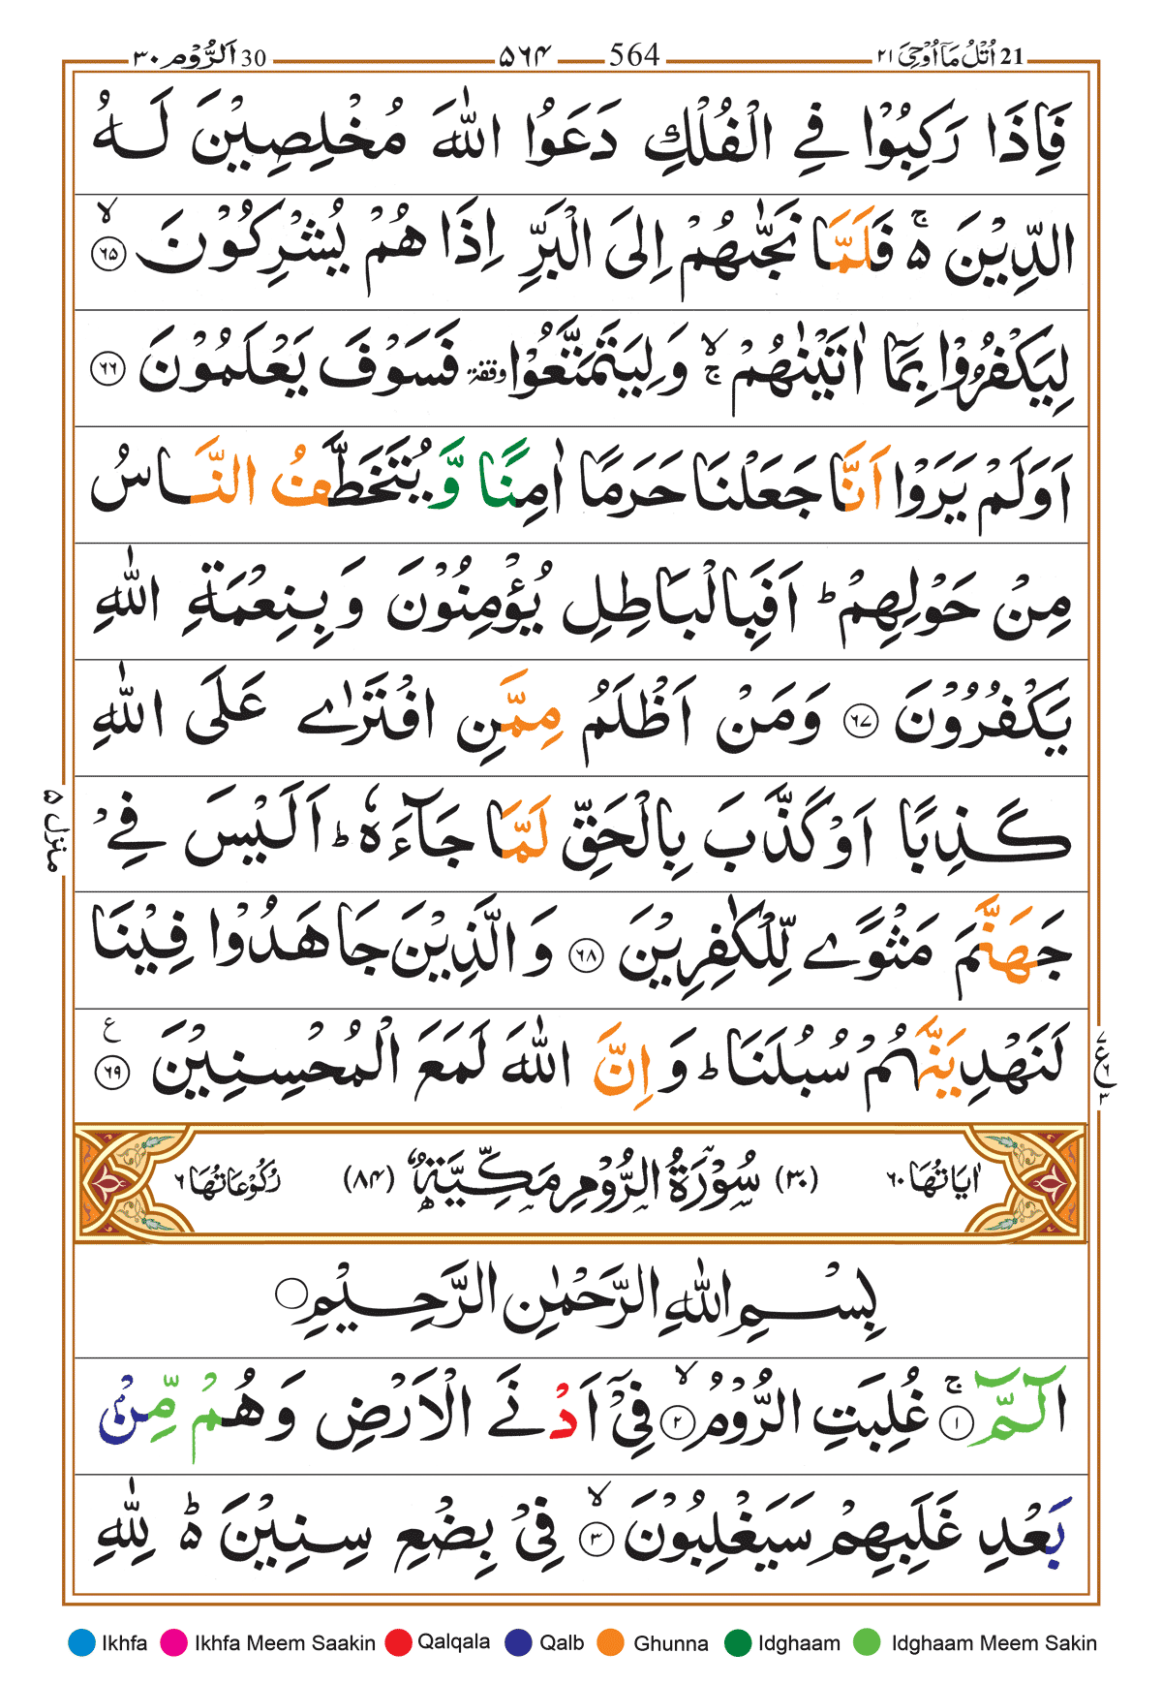 30 اَلرُّوْم ٣٠
۵۶۴ — 564
21 اُتْلُ مَآ اُوْحِیَ ٢١
فَاِذَا رَكِبُوْا فِي الْفُلْكِ دَعَوُا اللّٰهَ مُخْلِصِيْنَ لَهُ
الدِّيْنَ ۵ۚ فَلَمَّا نَجّٰىهُمْ اِلَى الْبَرِّ اِذَا هُمْ يُشْرِكُوْنَ ۙ‏﴿۶۵﴾
لِيَكْفُرُوْا بِمَاۤ اٰتَيْنٰهُمْ ۙۚ وَلِيَتَمَتَّعُوْا وقفة فَسَوْفَ يَعْلَمُوْنَ ﴿۶۶﴾
اَوَلَمْ يَرَوْا اَنَّا جَعَلْنَا حَرَمًا اٰمِنًا وَّيُتَخَطَّفُ النَّاسُ
مِنْ حَوْلِهِمْ ؕ اَفَبِالْبَاطِلِ يُؤْمِنُوْنَ وَبِنِعْمَةِ اللّٰهِ
يَكْفُرُوْنَ ﴿۶۷﴾ وَمَنْ اَظْلَمُ مِمَّنِ افْتَرٰے عَلَى اللّٰهِ
كَذِبًا اَوْ كَذَّبَ بِالْحَقِّ لَمَّا جَآءَهٗ ؕ اَلَيْسَ فِيْ
جَهَنَّمَ مَثْوًے لِّلْكٰفِرِيْنَ ﴿۶۸﴾ وَالَّذِيْنَ جَاهَدُوْا فِيْنَا
لَنَهْدِيَنَّهُمْ سُبُلَنَا ؕ وَاِنَّ اللّٰهَ لَمَعَ الْمُحْسِنِيْنَ ﴿۶۹﴾ ع
منزل ۵
٧ ع ۶ ٣
اٰيَاتُهَا ۶۰ (٣٠) سُوْرَةُ الرُّوْمِ مَكِّيَّةٌ (۸۴) رُكُوْعَاتُهَا ۶
بِسْمِ اللّٰهِ الرَّحْمٰنِ الرَّحِيْمِ
الٓمّٓ ۚ﴿۱﴾ غُلِبَتِ الرُّوْمُ ۙ﴿۲﴾ فِيْۤ اَدْنَے الْاَرْضِ وَهُمْ مِّنْۢ
بَعْدِ غَلَبِهِمْ سَيَغْلِبُوْنَ ۙ﴿۳﴾ فِيْ بِضْعِ سِنِيْنَ ۵ؕ لِلّٰهِ
Ikhfa Ikhfa Meem Saakin Qalqala Qalb Ghunna Idghaam Idghaam Meem Sakin